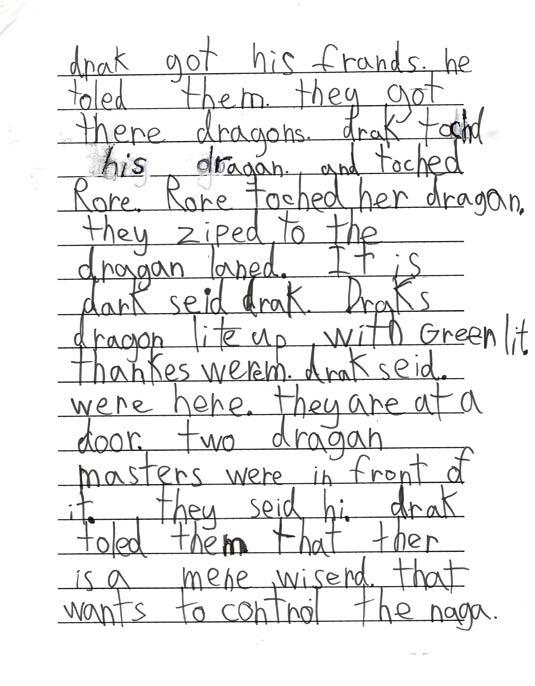 drak got his frands. he
toled them. they got
there dragons. drak tochd
his dragan. and toched
Rore. Rore toched her dragan.
they ziped to the
dragan laned. It is
dark seid drak. Draks
dragon lite up with Green lit.
thankes werem. drak seid.
were here. they are at a
door. two dragan
masters were in front of
it. they seid hi. drak
toled them that ther
is a mene wiserd. that
wants to control the naga.